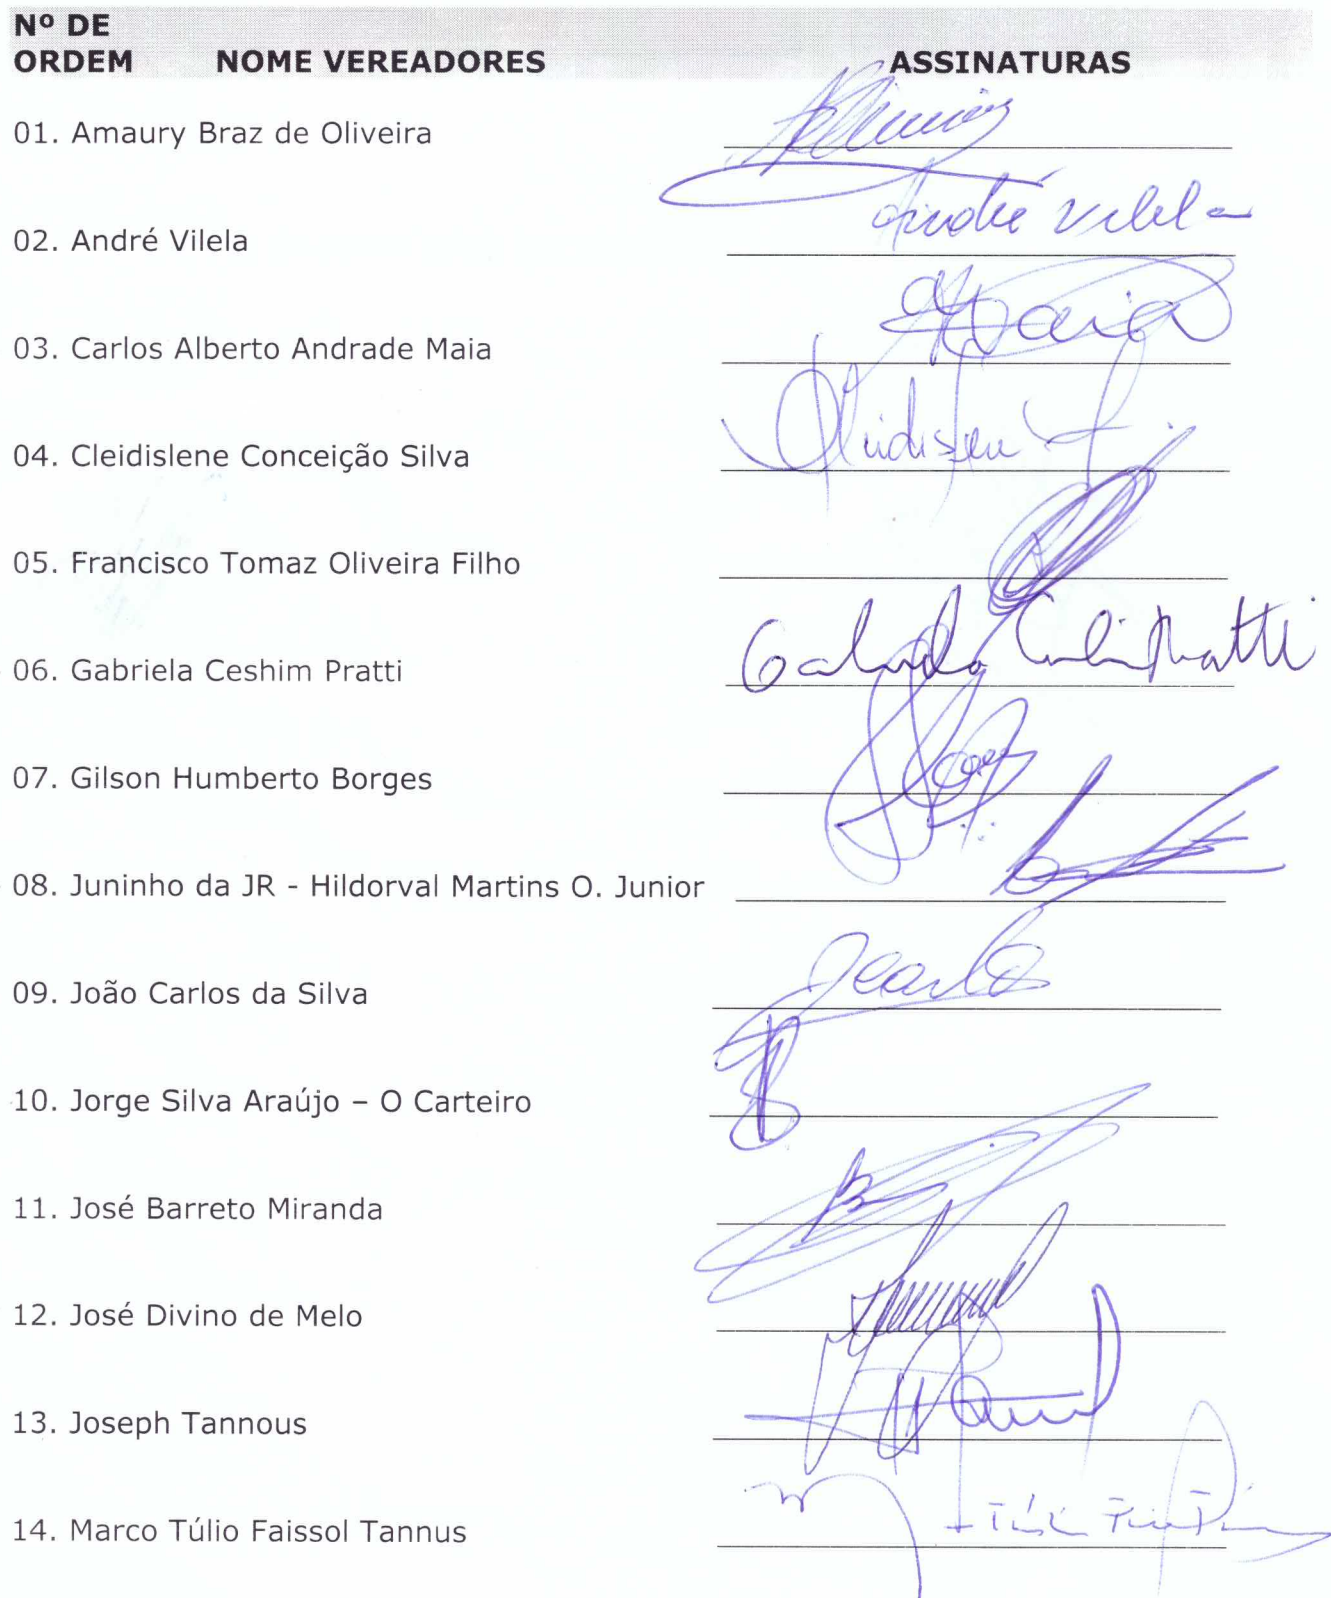 Nº DE
ORDEM NOME VEREADORES ASSINATURAS
01. Amaury Braz de Oliveira
André Vilela
02. André Vilela
Maia
03. Carlos Alberto Andrade Maia
04. Cleidislene Conceição Silva
05. Francisco Tomaz Oliveira Filho
06. Gabriela Ceshim Pratti
07. Gilson Humberto Borges
08. Juninho da JR - Hildorval Martins O. Junior
09. João Carlos da Silva
10. Jorge Silva Araújo – O Carteiro
11. José Barreto Miranda
12. José Divino de Melo
13. Joseph Tannous
14. Marco Túlio Faissol Tannus